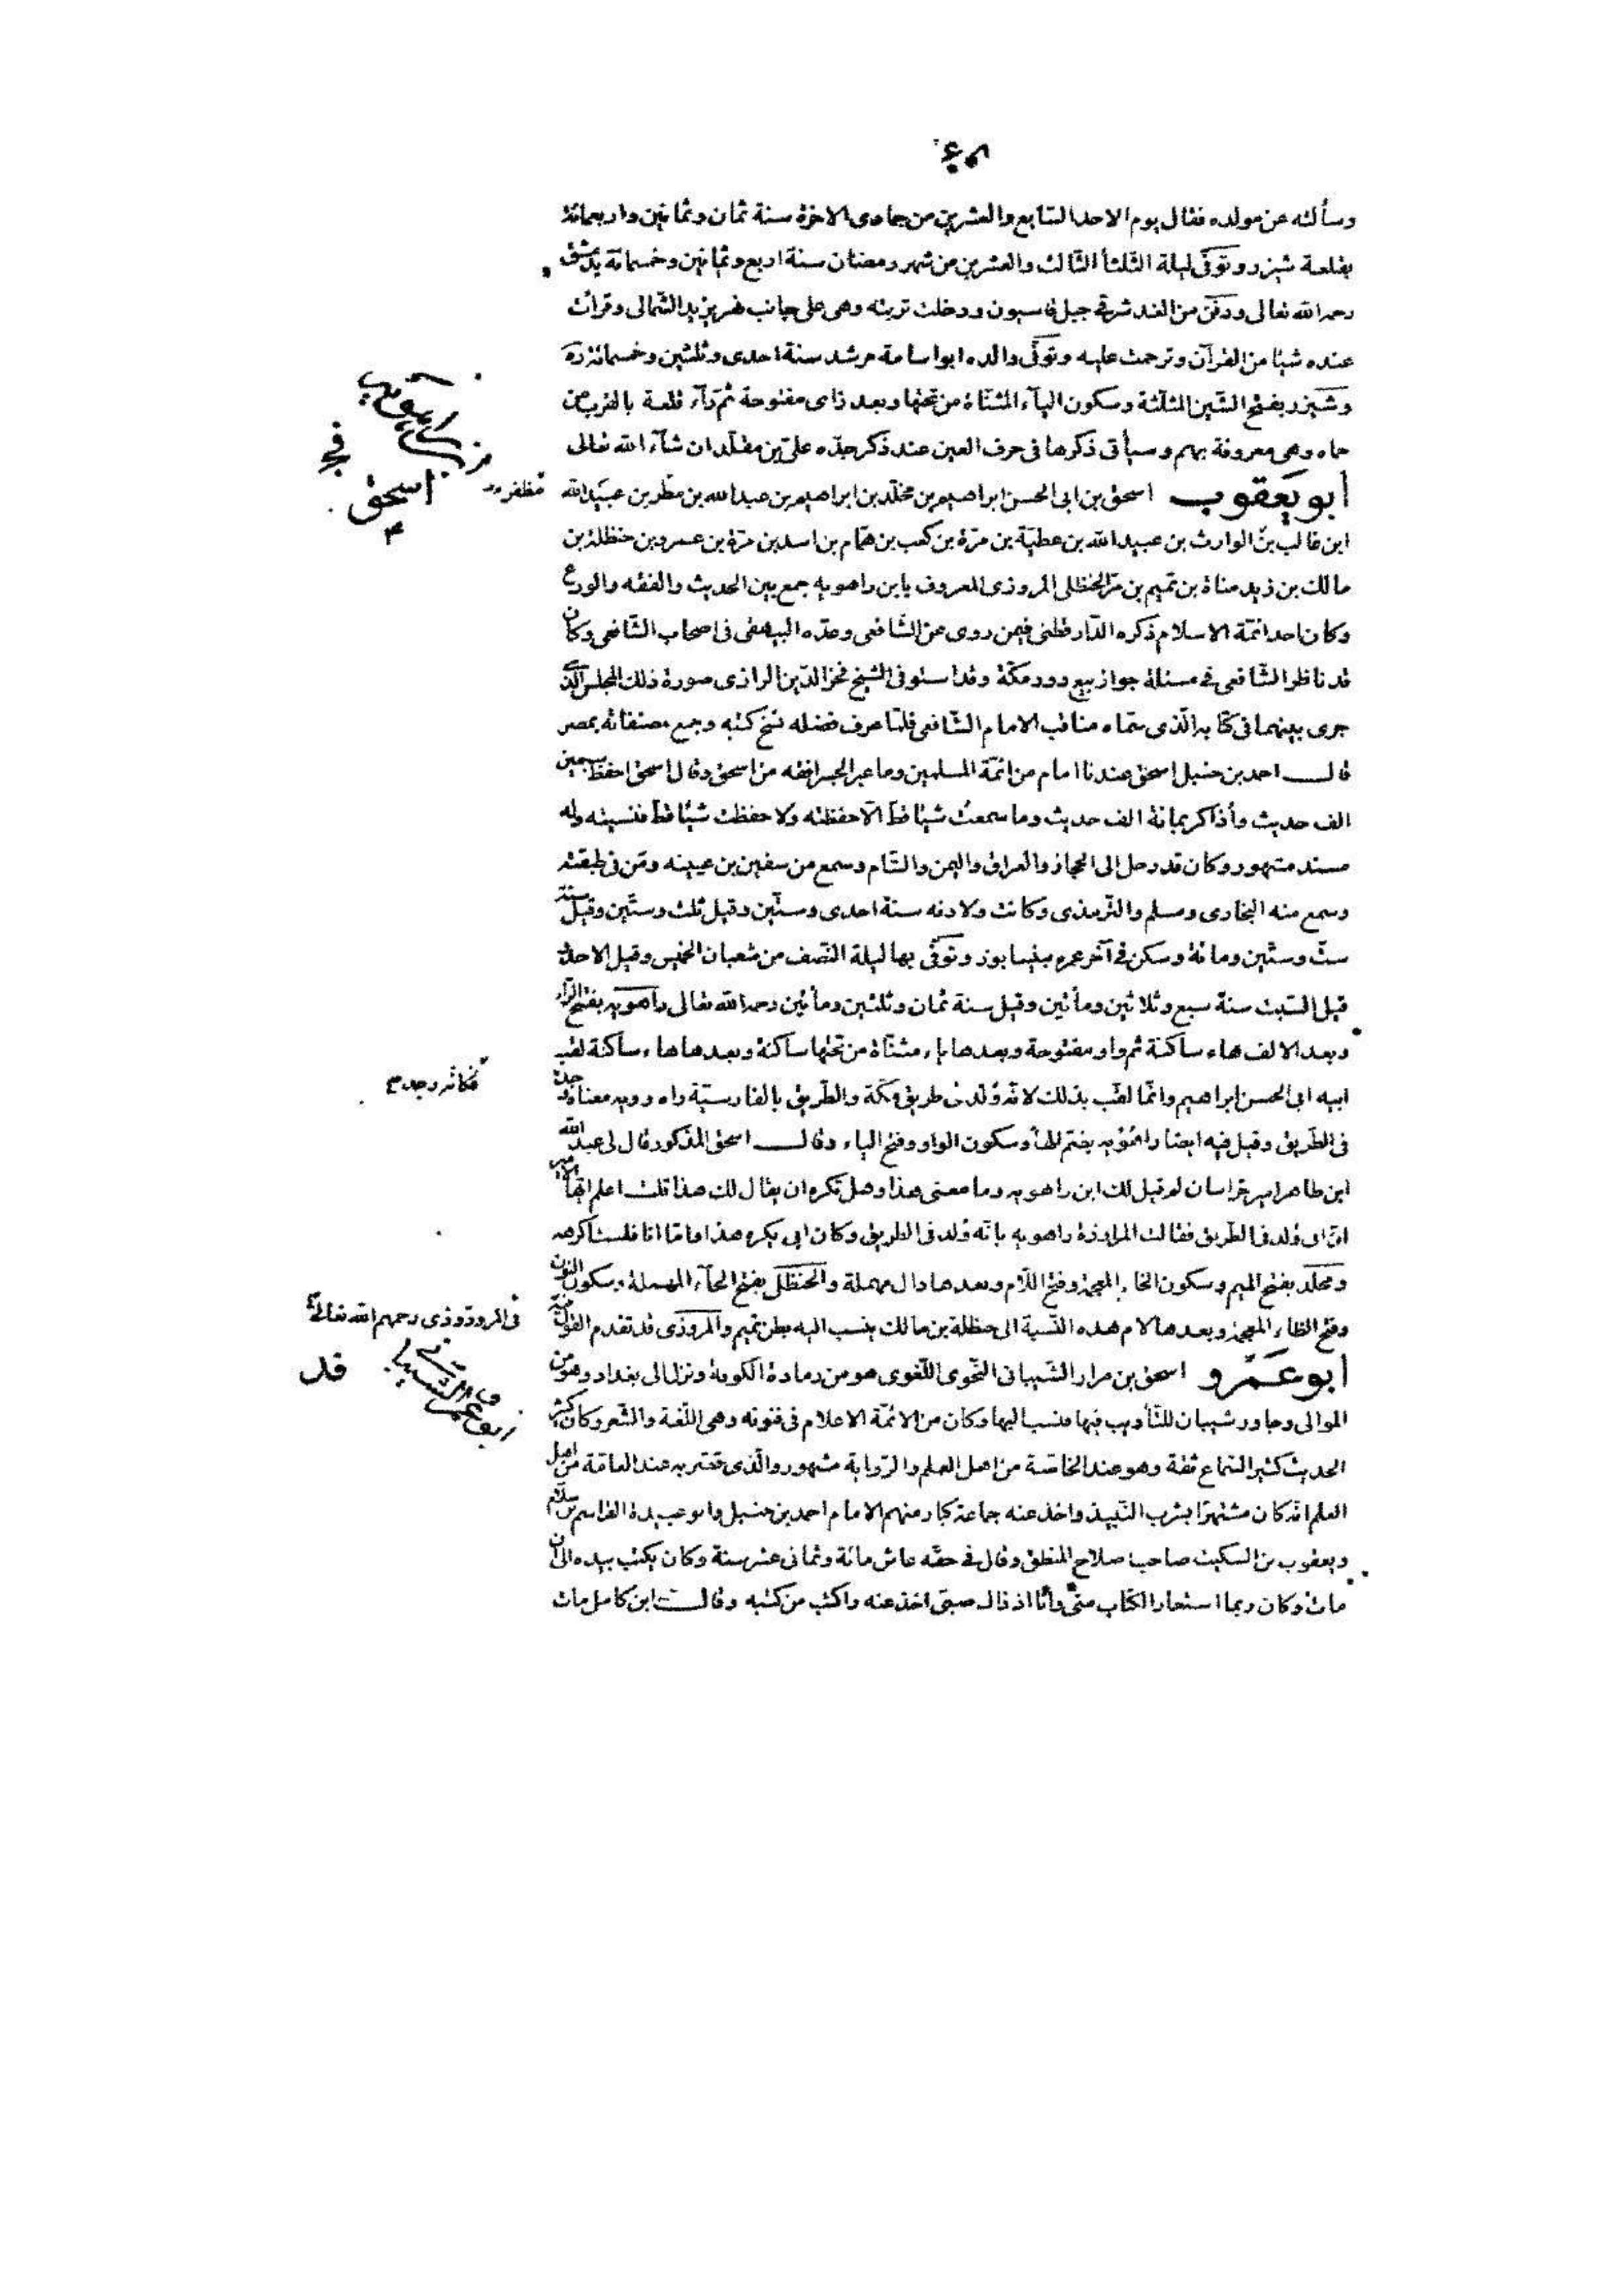 وسألته عن مولده فقال يوم الاحد السّابع والعشرين من جمادى الاخرة سنة ثمان وثمانين واربعمائة
بقلعة شيزر وتوفّى ليلة الثلثأ الثّالث والعشرين من شهر رمضان سنة اربع وثمانين وخمسمائة بدمشق
رحمه الله تعالى ودفن من الغد شرقى جبل قاسيون ودخلت تربته وهى على جانب نهر يزيد الشّمالى وقرأت
عنده شيئا من القرآن وترحمت عليه وتوفّى والده ابو اسامة مرشد سنة احدى وثلثين وخمسمائة
وشيزر بفتح الشّين المثلّثة وسكون اليآء المثنّاة من تحتها وبعد زاى مفتوحة ثم رآء قلعة بالقرب من
حماه وهى معروفة بهم وسيأتى ذكرها فى حرف العين عند ذكر جدّه علىّ بن مقلّد ان شآء الله تعالى
أبو يعقوب اسحق بن ابى الحسن ابراهيم بن مخلّد بن ابراهيم بن عبد الله بن مطر بن عبيد الله
ابن غالب بن الوارث بن عبيد الله بن عطيّة بن مرّة بن كعب بن همّام بن اسد بن مرّة بن عمرو بن حنظلة بن
مالك بن زيد مناة بن تميم بن مرّ الحنظلى المروزى المعروف بابن راهويه جمع بين الحديث والفقه والورع
وكان احد ائمّة الاسلام ذكره الدّارقطنى فيمن روى عن الشّافعى وعدّه البيهقى فى اصحاب الشّافعى وكان
قد ناظر الشّافعى فى مسئلة جواز بيع دور مكّة وقد استوفى الشيخ فخر الدّين الرازى صورة ذلك المجلس الّذى
جرى بينهما فى كتابه الّذى سمّاه مناقب الامام الشّافعى فلمّا عرف فضله نسخ كتبه وجمع مصنفاته بمصر
قال احمد بن حنبل اسحق عندنا امام من ائمّة المسلمين وما عبر الجسر افقه من اسحق وقال اسحق احفظ سبعين
الف حديث وأذاكر بمائة الف حديث وما سمعت شيئا قط الّا حفظته ولا حفظت شيئا قط فنسيته وله
مسند مشهور وكان قد رحل الى الحجاز والعراق واليمن والشّام وسمع من سفين بن عيينه ومن فى طبقته
وسمع منه البخارى ومسلم والترمذى وكانت ولادته سنة احدى وستّين وقيل ثلث وستّين وقيل سنة
ستّ وستّين ومائة وسكن فى آخر عمره بنيسابور وتوفّى بها ليلة النّصف من شعبان الخميس وقيل الاحد
قيل السّبت سنة سبع وثلاثين ومأتين وقيل سنة ثمان وثلثين ومأتين رحمه الله تعالى راهويه بفتح الرّاء
وبعد الالف هاء ساكنة ثم واو مفتوحة وبعدها ياء مثنّاة من تحتها ساكنة وبعدها هاء ساكنة لقب
ابيه ابى الحسن ابراهيم وانّما لقّب بذلك لانّه وُلد فى طريق مكّة والطّريق بالفارسيّة راه وويه معناه وجد
فى الطّريق وقيل فيه ايضا راهُوْيه بضمّ الهأ وسكون الواو وفتح الياء وقال اسحق المذكور قال لى عبد الله
ابن طاهر امير خراسان لم قيل لك ابن راهويه وما معنى هذا وهل تكره ان يقال لك هذا قلت اعلم ايّها الامير
انّ ابى وُلد فى الطّريق فقالت المراوزة راهويه بانّه وُلد فى الطريق وكان ابى يكره هذا وامّا انا فلست اكرهه
ومخلّد بفتح الميم وسكون الخاء المعجمة وفتح اللّام وبعدها دال مهملة والحنظلى بفتح الحآء المهملة وسكون النون
وفتح الظاء المعجمة وبعدها لام هذه النّسبة الى حنظلة بن مالك ينسب اليه بطن تميم والمروزى قد تقدم القول فيه
أبو عمرو اسحق بن مرار الشّيبانى النّحوى اللّغوى هو من رمادة الكوفة ونزل الى بغداد وهو من
الموالى وجاور شيبان للتّأديب فيها فنسب اليها وكان من الائمّة الاعلام فى فنونه وهى اللّغة والشّعر وكان كثير
الحديث كثير السّماع ثقة وهو عند الخاصّة من اهل العلم والرّواية مشهور والّذى قصّر به عند العامّة من اهل
العلم انّه كان مشتهرا بشرب النّبيذ واخذ عنه جماعة كبار منهم الامام احمد بن حنبل وابو عبيدة القاسم بن سلّام
ويعقوب بن السكيت صاحب صلاح المنطق وقال فى حقّه عاش مائة وثمانى عشر سنة وكان يكتب بيده الى ان
مات وكان ربما استعار الكتاب منّى وأنا اذ ذاك صبىّ اخذ عنه واكتب من كتبه وقال ابن كامل مات
مظفر
اسحق
فكانه وجد
فى المرورّوذى رحمهم الله تعالى
ابو عمرو الشيبانى